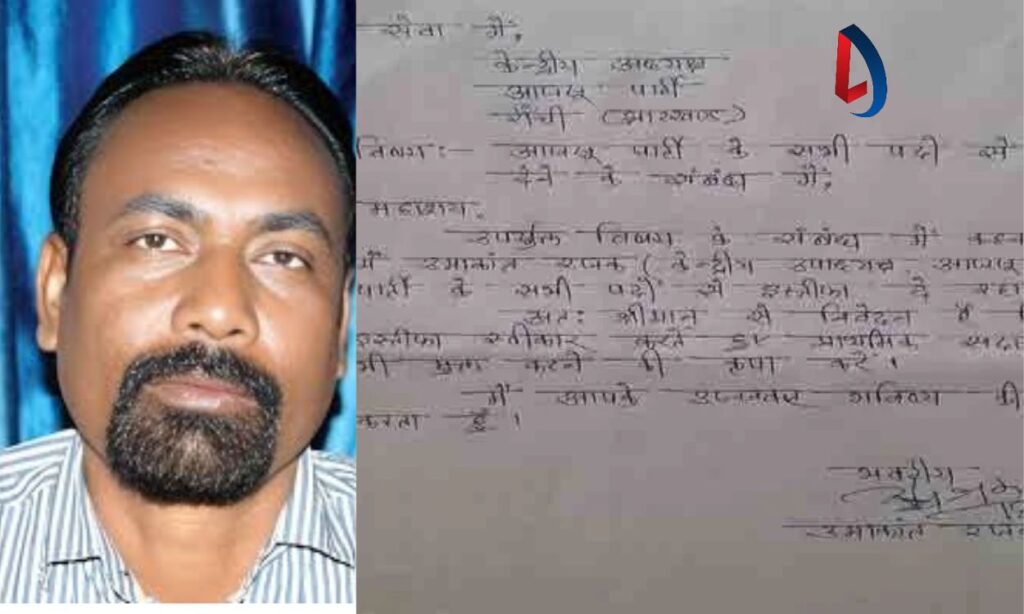 सेवा में,
केन्द्रीय अध्यक्ष
आजसू पार्टी
राँची (झारखण्ड)
विषय:- आजसू पार्टी के सभी पदों से
देने के संबंध में,
महाशय,
उपर्युक्त विषय के संबंध में कहना
मैं उमाकांत रजक (केन्द्रीय उपाध्यक्ष आजसू
पार्टी के सभी पदों से इस्तीफा दे रहा
अत: श्रीमान से निवेदन है
इस्तीफा स्वीकार करते हुए प्राथमिक
भी मुक्त करने की कृपा करें।
मैं आपके उज्जवल भविष्य की
करता हूँ।
भवदीय
उमाकांत रजक